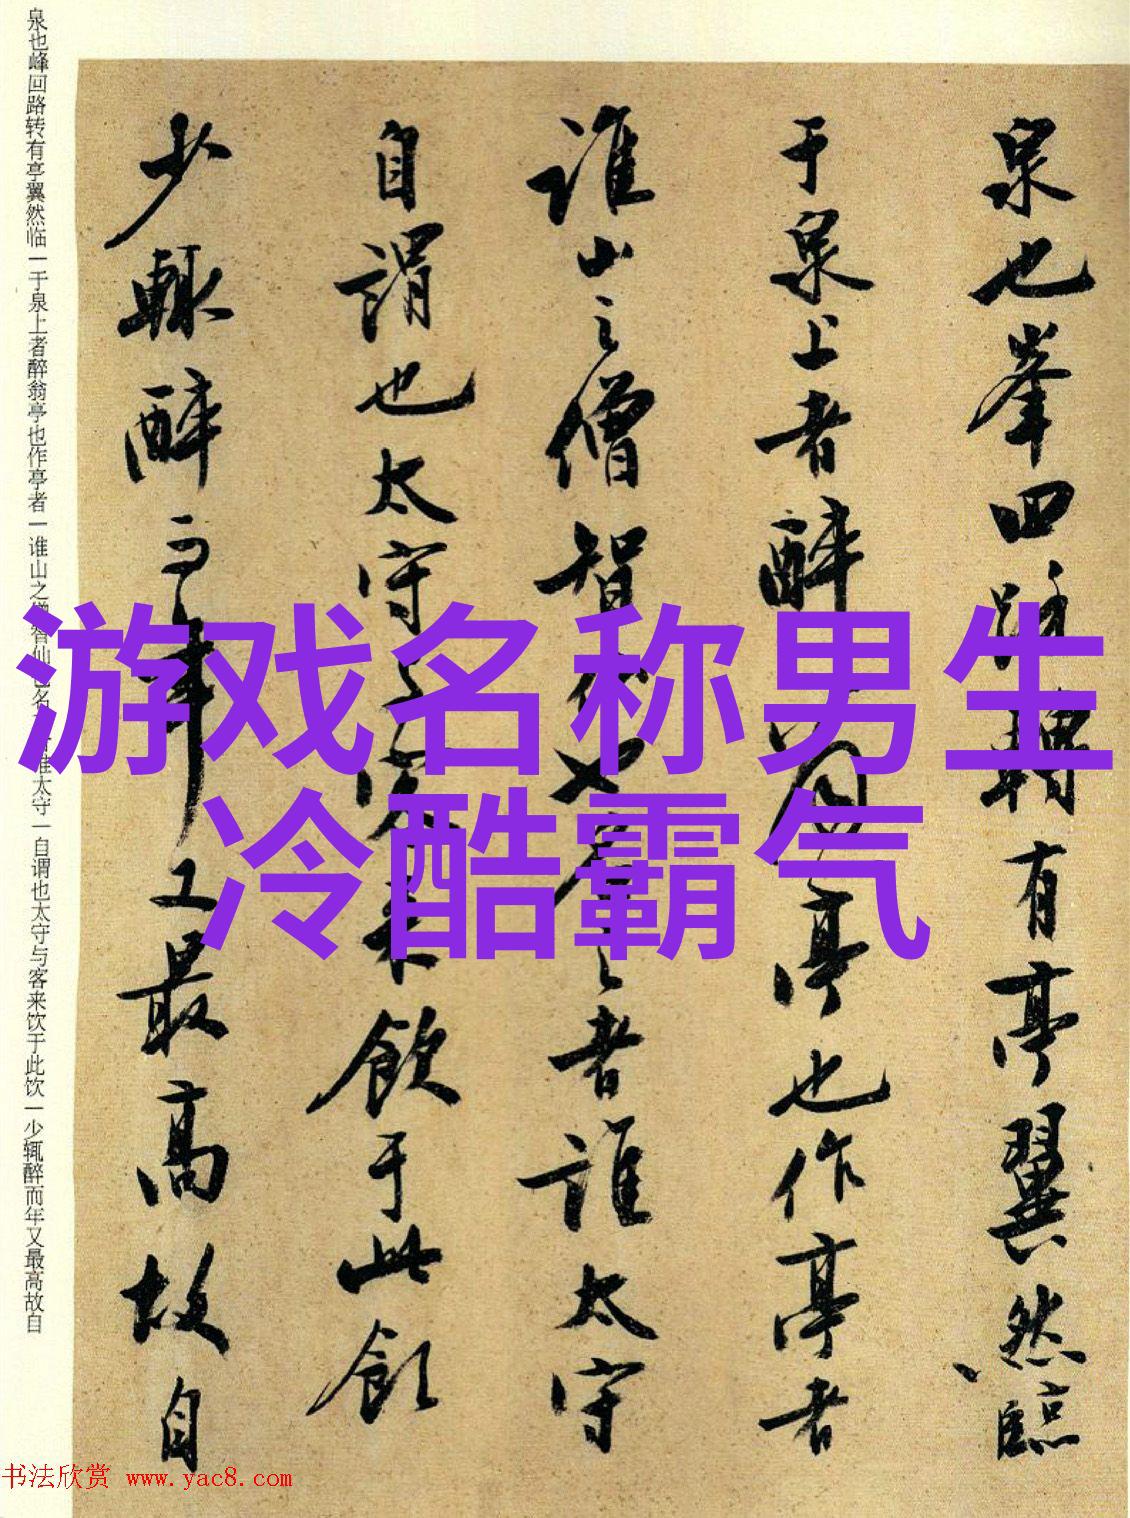 游戏名称男生
冷酷霸气
泉也峯回路轉有亭翼然臨
于泉上者醉翁亭也作亭者
誰山之僧智仙也名之者誰太守
自謂也太守与客来飲于此飲
少輒醉而年又最高故自
泉也峰回路转有亭翼然临一于泉上者醉翁亭也作亭者一谁山之僧智仙也名之者谁太守一自谓也太守与客来饮于此饮一少辄醉而年又最高故自
书法欣赏 www.yac8.com